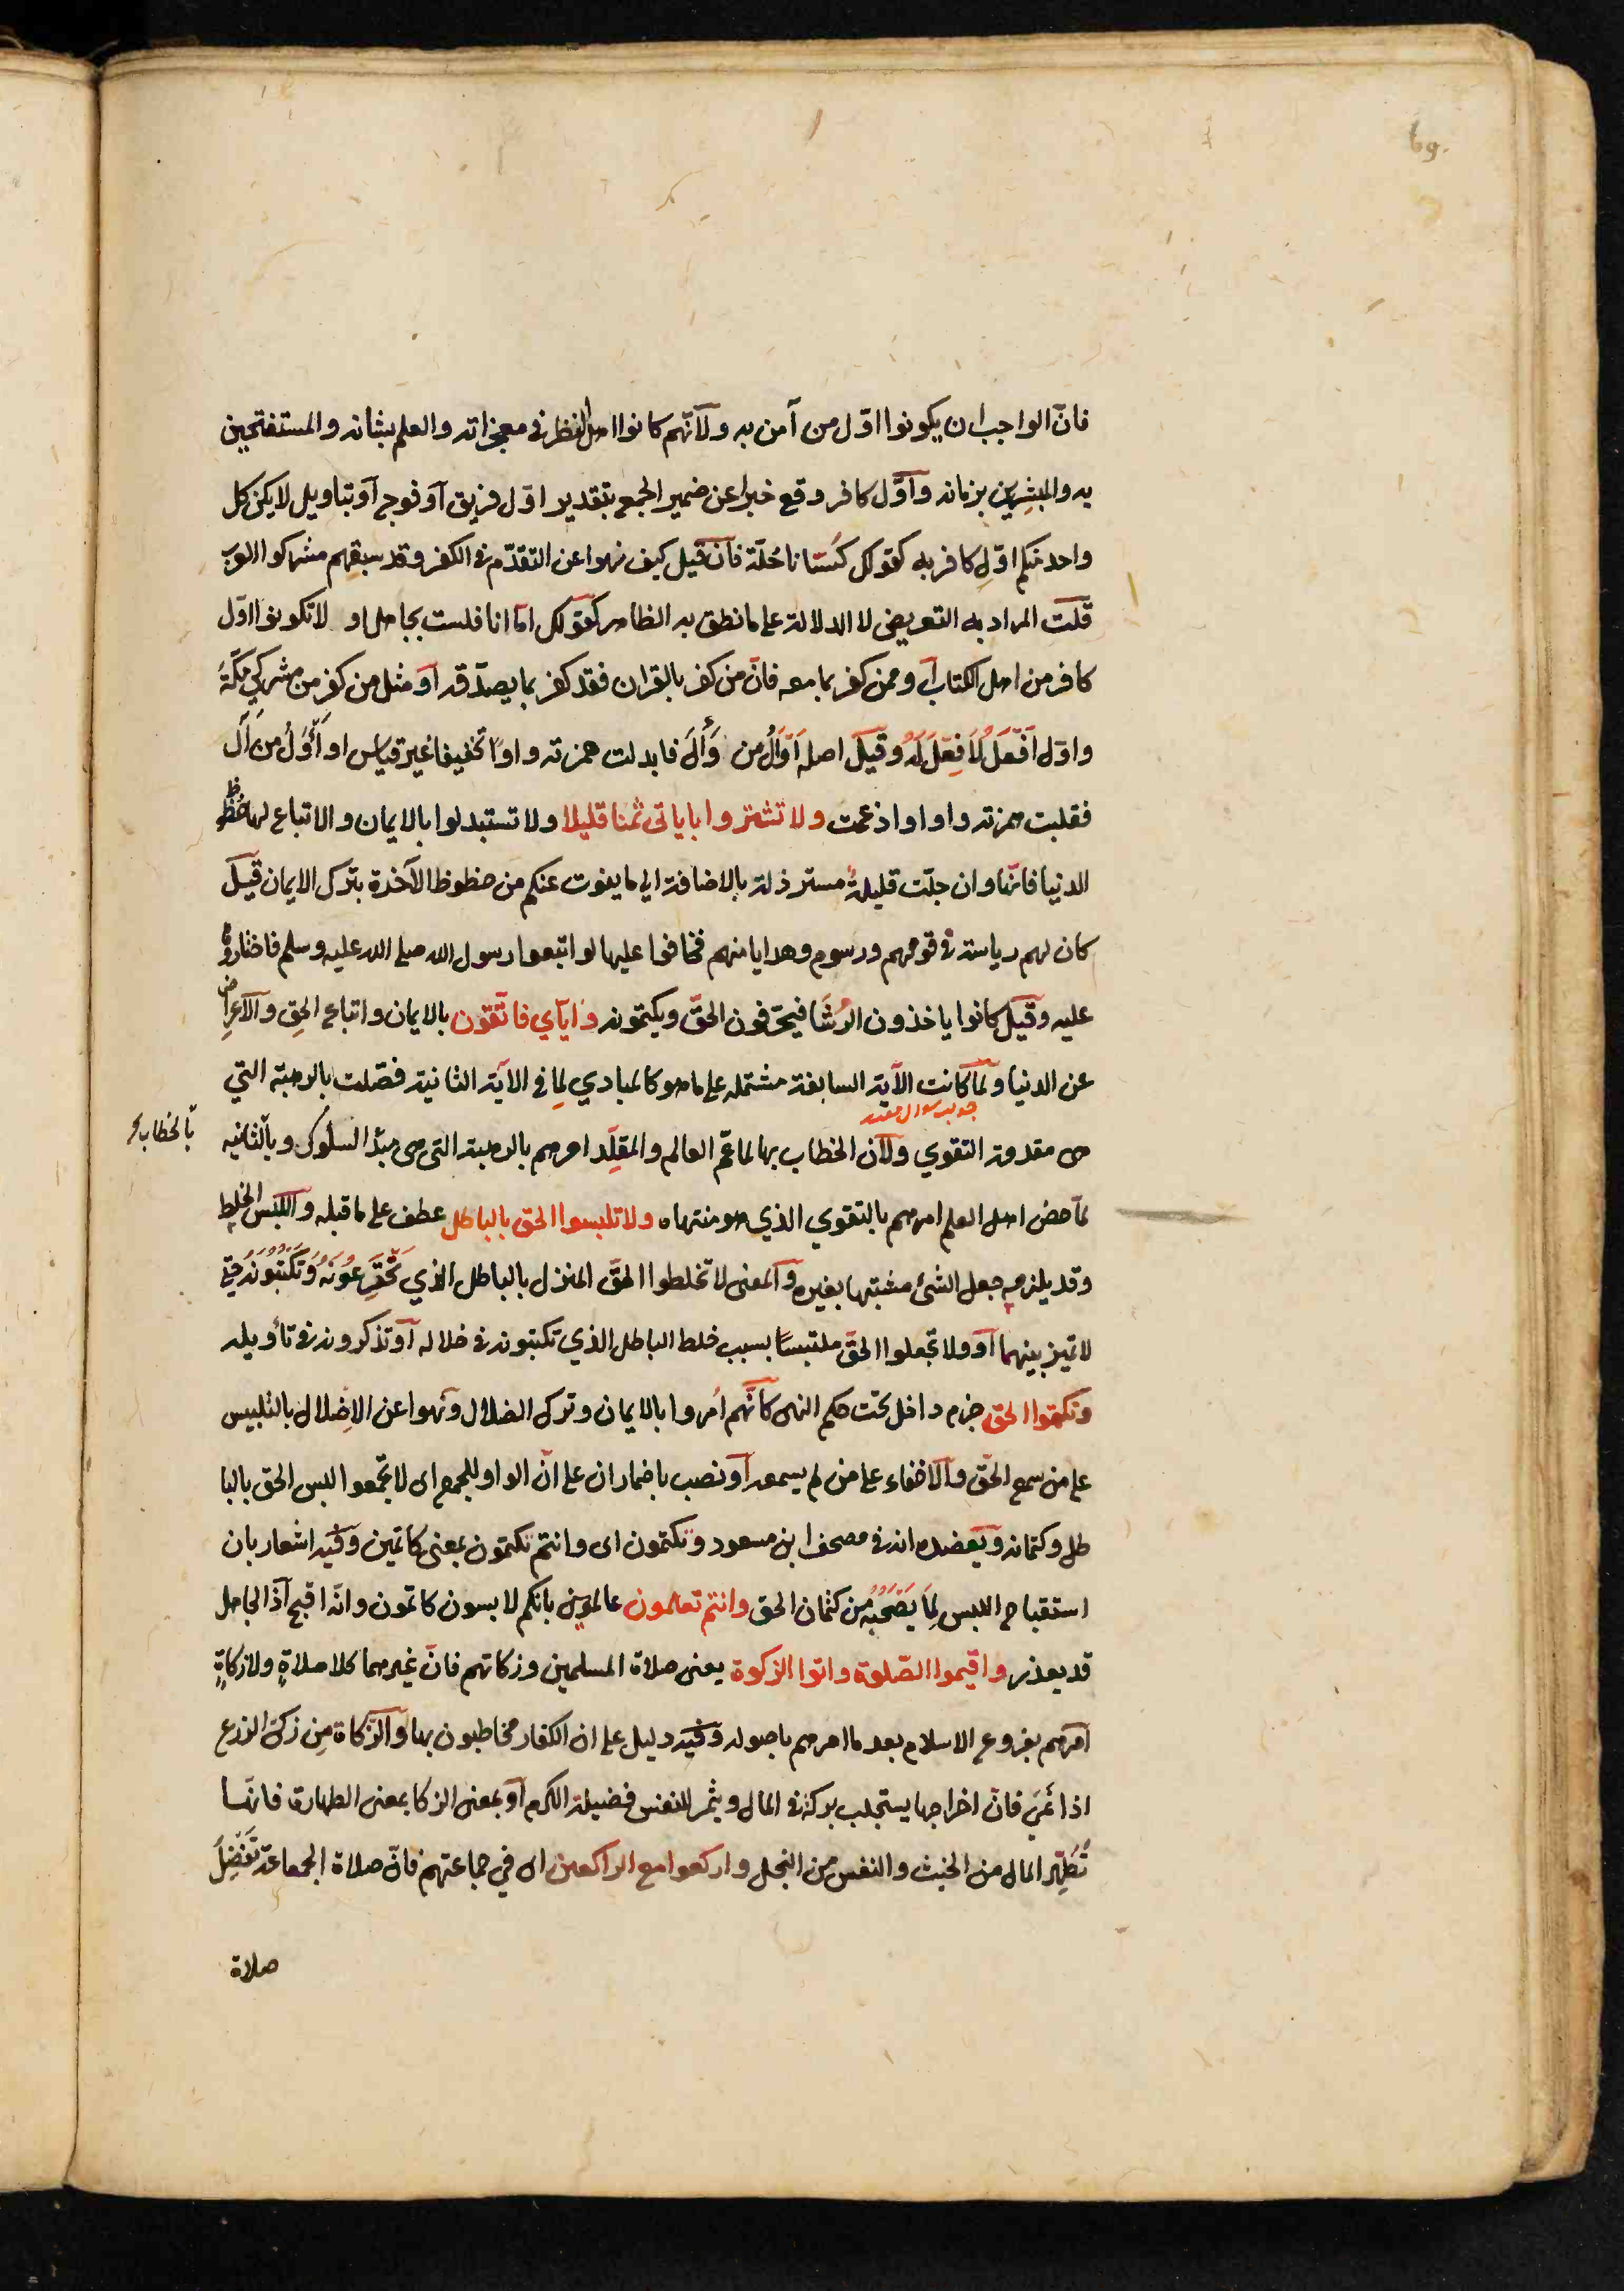 69.
فانّ الواجب ان يكونوا اوّل من آمن به ولانّهم كانوا اهل النظر في معجزاته والعلم بشانه والمستفتحين
به والمبشرين بزمانه واوّل كافر وقع خبرا عن ضمير الجمع بتقدير اوّل فريق او فوج او بتاويل لا يكن كل
واحد منكم اوّل كافر به كقولك كسانا حُلّة فان قيل كيف نهوا عن التقدّم في الكفر وقد سبقهم مشركوا العرب
قلت المراد به التعريض لا الدلالة على ما نطق به الظاهر كقولك امّا انا فلست بجاهل او لا تكونوا اوّل
كافر من اهل الكتاب او ممن كفر بما معه فانّ من كفر بالقران فقد كفر بما يصدّقه او مثل من كفر من مشركي مكّة
واوّل اَفْعَل لا فِعْلَ لَهُ وقيل اصله اَوْأَل من وَأَلَ فابدلت همزته واوًا تخفيفا غير قياس او أَأْوَلُ من آل
فقلبت همزته واوا وادغمت ولا تشتروا باياتى ثمنا قليلا ولا تستبدلوا بالايمان والاتباع لها حظوظ
الدنيا فانّها وان جلّت قليلةٌ مسترذلة بالاضافة الى ما يفوت عنكم من حظوظ الآخرة بترك الايمان قيل
كان لهم رياسة في قومهم ورسوم وهدايا منهم فخافوا عليها لو اتبعوا رسول الله صلى الله عليه وسلم فاختاروها
عليه وقيل كانوا ياخذون الرُشَا فيحرّفون الحقّ ويكتمونه واياي فاتّقون بالايمان واتباع الحق والاعراض
عن الدنيا ولمّا كانت الآية السابقة مشتملة على ما هو كالمبادي لِما في الآية الثانية فصّلت بالرهبة التي
جواب سوال مقدر
هى مقدمة التقوي ولانّ الخطاب بها لمّا عمّ العالم والمقلّد امرهم بالرهبة التى هى مبدأ السلوك وبالثانيه
بالخطاب
لمّا خصّ اهل العلم امرهم بالتقوي الذي هو منتهاه ولا تلبسوا الحق بالباطل عطف على ما قبله واللبس الخلط
وقد يلزمه جعل الشئ مشتبها بغيره والمعنى لا تخلطوا الحقّ المنزل بالباطل الذي تخترعُونَهُ وتكتبُونَهُ حتى
لا تميز بينهما او ولا تجعلوا الحقّ ملتبسًا بسبب خلط الباطل الذي تكتبونه في خلاله او تذكرونه في تأويله
وتكتموا الحق جزم داخل تحت حكم النهى كانّهم اُمروا بالايمان وترك الضلال ونهوا عن الاِضلال بالتلبيس
على من سمع الحقّ والاخفاء على من لم يسمعه او نصب باضمار ان على انّ الواو للجمع اى لا تجمعوا لبس الحق بالبا
طل وكتمانه ويعضده انه في مصحف ابن مسعود وتكتمون اى وانتم تكتمون بمعنى كاتمين وفيه اشعار بان
استقباح اللبس لِمَا يَصْحَبُهُ من كتمان الحق وانتم تعلمون عالمين بانكم لابسون كاتمون وانّه اقبح اذ الجاهل
قد يعذر واقيموا الصّلوة واتوا الزكوة يعنى صلاة المسلمين وزكاتهم فانّ غيرهما كلا صلاةٍ ولا زكاةٍ
امرهم بفروع الاسلام بعد ما امرهم باصوله وفيه دليل على ان الكفار مخاطبون بها والزكاة مِن زكى الزرع
اذا نمَى فانّ اخراجها يستجلب بركة في المال ويثمر للنفس فضيلة الكرم او بمعنى الزكا بمعنى الطهارة فانّها
تُطَهِّر المال من الخبث والنفس من البخل واركعوا مع الراكعين اى في جماعتهم فانّ صلاة الجماعة تَفْضُل
صلاة